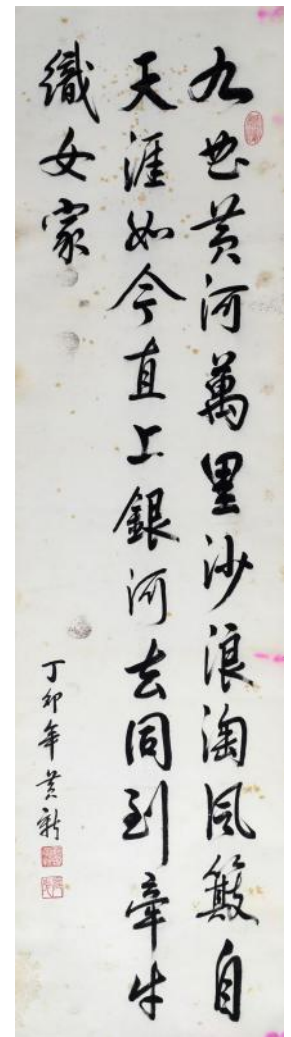 九曲黃河萬里沙浪淘風簸自
天涯如今直上銀河去同到牽牛
織女家
丁卯年黃新